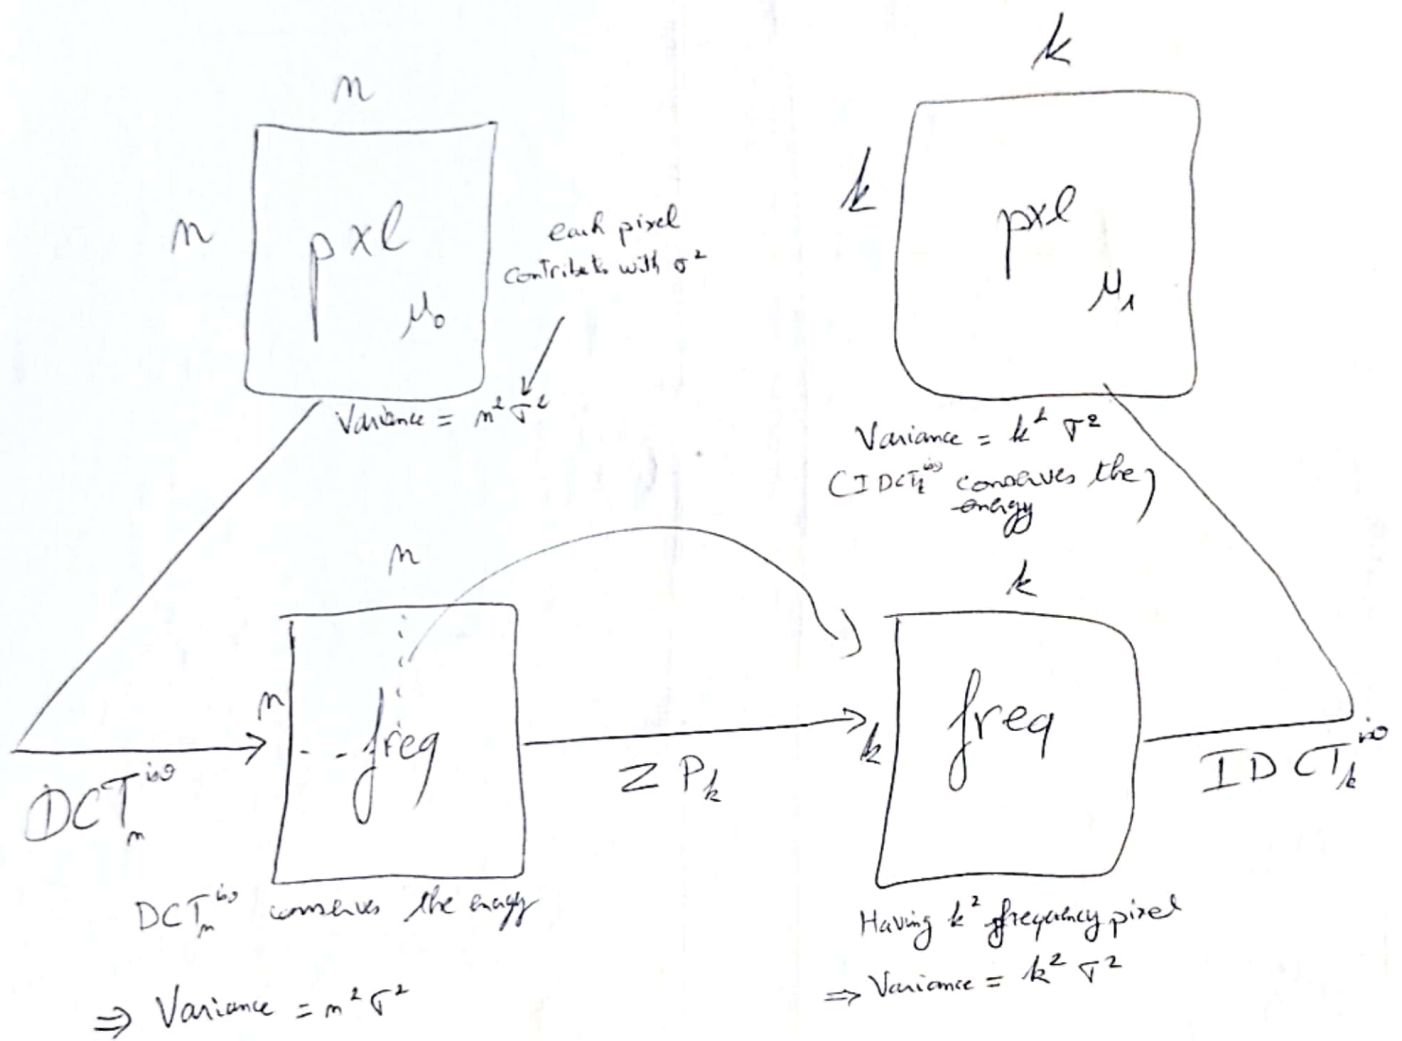 n
n
pxl
μ₀
each pixel
contributes with σ²
Variance = n² σ²
k
k
pxl
μ₁
Variance = k² σ²
(IDCTₖⁱˢᵒ conserves the
energy)
n
n
freq
DCTₙⁱˢᵒ
ZPₖ
k
k
freq
IDCTₖⁱˢᵒ
DCTₙⁱˢᵒ conserves the energy
⇒ Variance = n² σ²
Having k² frequency pixel
⇒ Variance = k² σ²